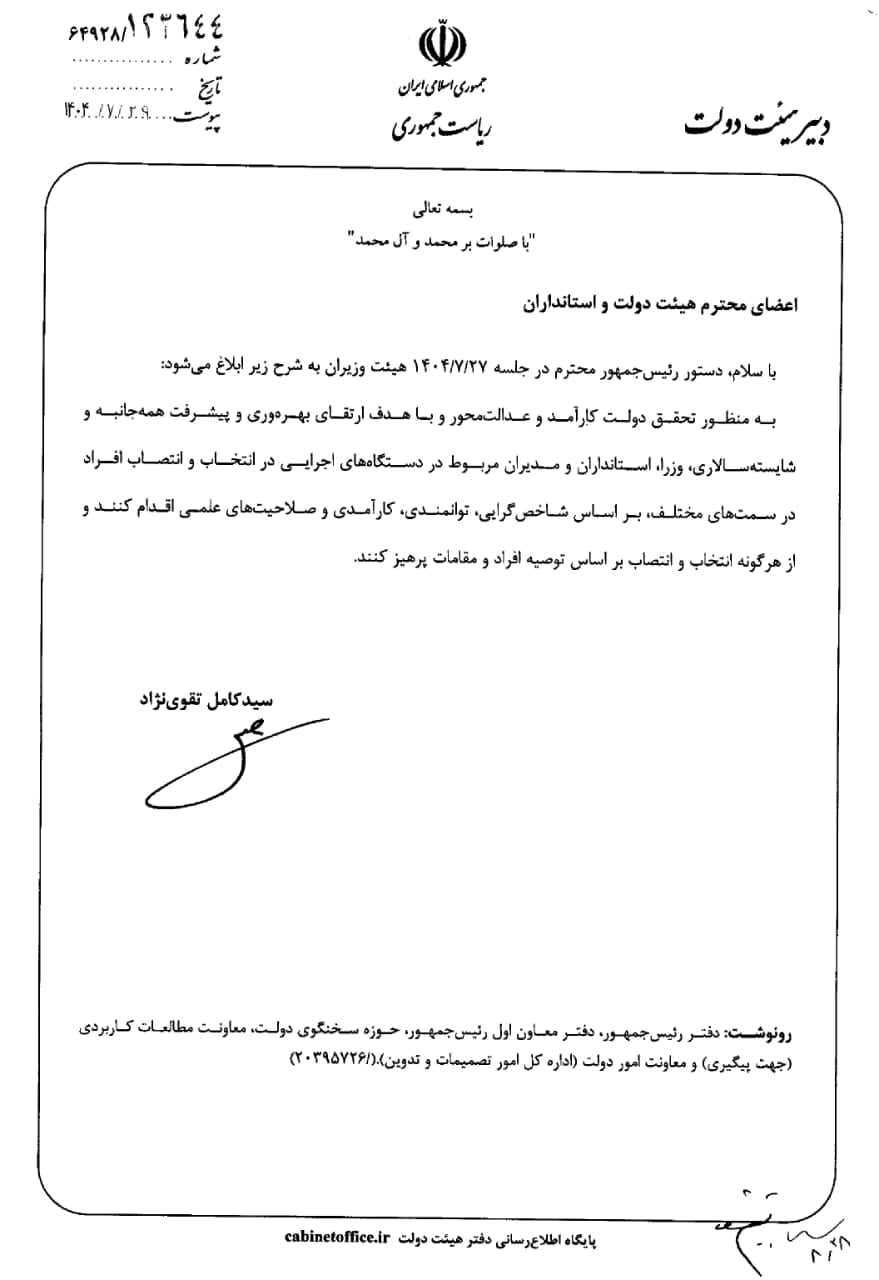 ۶۴۹۲۸/۱۲۳۶٤٤
شماره
تاریخ
پیوست ۱۴۰۴/۷/۲۹
جمهوری اسلامی ایران
ریاست جمهوری
دبیر هیئت دولت
بسمه تعالی
"با صلوات بر محمد و آل محمد"
اعضای محترم هیئت دولت و استانداران
با سلام، دستور رئیس‌جمهور محترم در جلسه ۱۴۰۴/۷/۲۷ هیئت وزیران به شرح زیر ابلاغ می‌شود:
به منظور تحقق دولت کارآمد و عدالت‌محور و با هدف ارتقای بهره‌وری و پیشرفت همه‌جانبه و
شایسته‌سالاری، وزرا، استانداران و مدیران مربوط در دستگاه‌های اجرایی در انتخاب و انتصاب افراد
در سمت‌های مختلف، بر اساس شاخص‌گرایی، توانمندی، کارآمدی و صلاحیت‌های علمی اقدام کنند و
از هرگونه انتخاب و انتصاب بر اساس توصیه افراد و مقامات پرهیز کنند.
سیدکامل تقوی‌نژاد
رونوشت: دفتر رئیس‌جمهور، دفتر معاون اول رئیس‌جمهور، حوزه سخنگوی دولت، معاونت مطالعات کاربردی
(جهت پیگیری) و معاونت امور دولت (اداره کل امور تصمیمات و تدوین).(/۲۰۳۹۵۷۲۶)
پایگاه اطلاع‌رسانی دفتر هیئت دولت cabinetoffice.ir